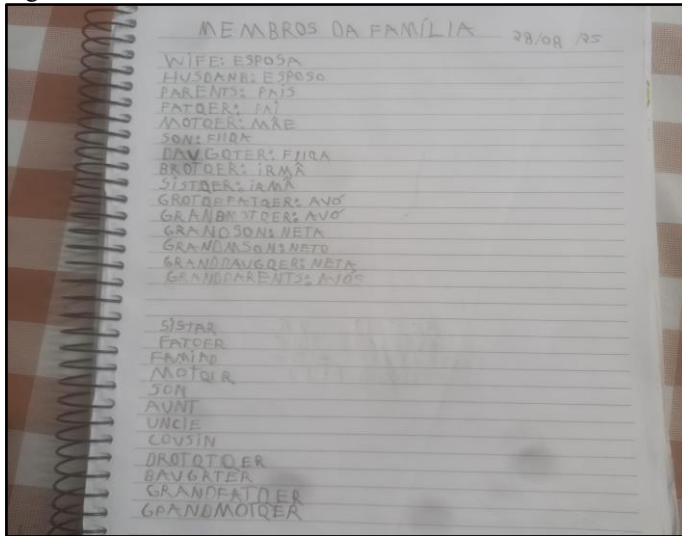 MEMBROS DA FAMÍLIA 28/08/25
WIFE: ESPOSA
HUSDANB: ESPOSO
PARENTS: PAIS
FATQER: PAI
MOTQER: MÃE
SON: FIIQA
DAUGQTER: FIIQA
BROTQER: IRMÃ
SISTQER: IRMÃ
GROTQEFATQER: AVÓ
GRANBMOTQER: AVÓ
GRANDSON: NETA
GRANDMSON: NETO
GRANDDAUGQER: NETA
GRANDPARENTS: AVÓS
SISTAR
FATQER
MOTQER
SON
AUNT
UNCIE
COUSIN
BROTQTQER
BAUGRTER
GRANDFATQER
GRANDMOTQER